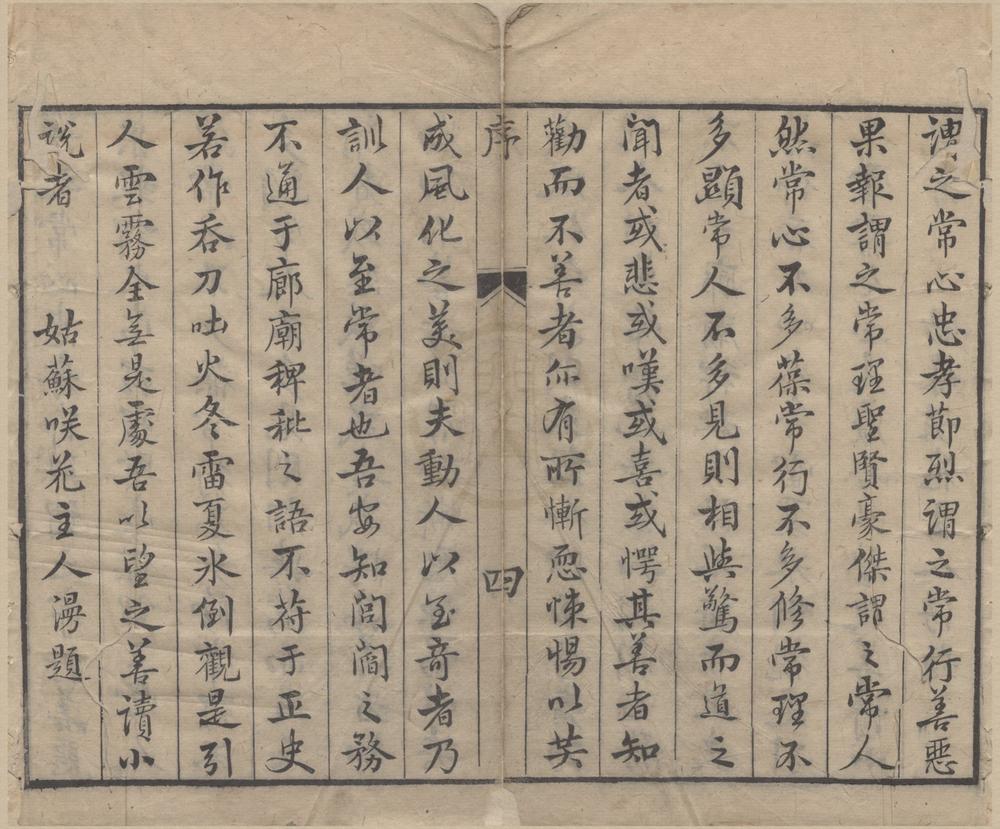 謂之常心忠孝節烈謂之常行善惡
果報謂之常理聖賢豪傑謂之常人
然常心不多葆常行不多修常理不
多顯常人不多見則相與驚而道之
聞者或悲或嘆或喜或愕其善者知
勸而不善者亦有所慚恧悚惕以共
序 四
成風化之美則夫動人以至奇者乃
訓人以至常者也吾安知閭閻之務
不通于廊廟稗秕之語不符于正史
若作吞刀吐火冬雷夏氷倒觀是引
人雲霧全無是處吾以望之善讀小
說者 姑蘇咲花主人漫題